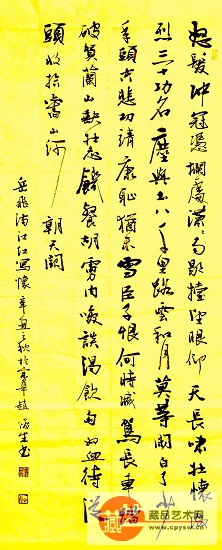 怒髮冲冠憑欄處瀟瀟雨歇擡望眼仰天長嘯壯懷激
烈三十功名塵與土八千里路雲和月莫等閑白了少
年頭空悲切靖康恥猶未雪臣子恨何時滅駕長車踏
破賀蘭山缺壯志饑餐胡虜肉笑談渴飲匈奴血待從
頭收拾舊山河 朝天闕
岳飛滿江紅寫懷 辛丑之秋於京華趙
藏品艺术网
www.cpysw.cn